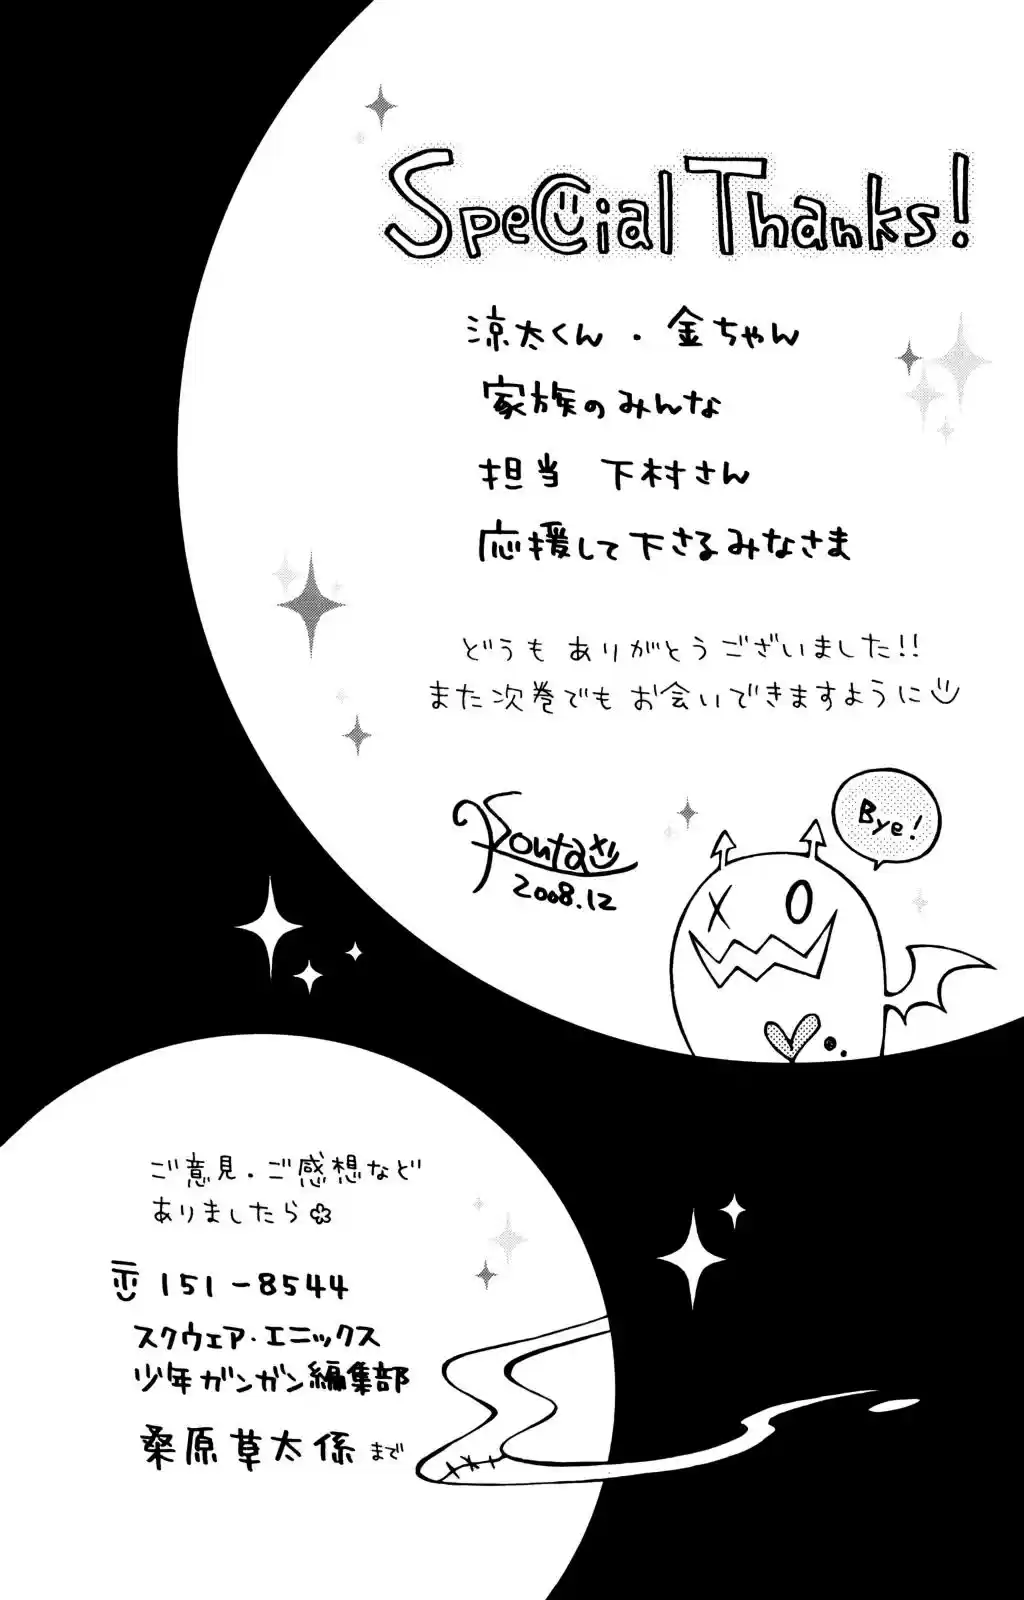 Special Thanks!
涼太くん・金ちゃん
家族のみんな
担当 下村さん
応援して下さるみなさま
どうもありがとうございました!!
また次巻でもお会いできますように
Bye!
2008.12
ご意見・ご感想など
ありましたら
〒151-8544
スクウェア・エニックス
少年ガンガン編集部
桑原草太係まで